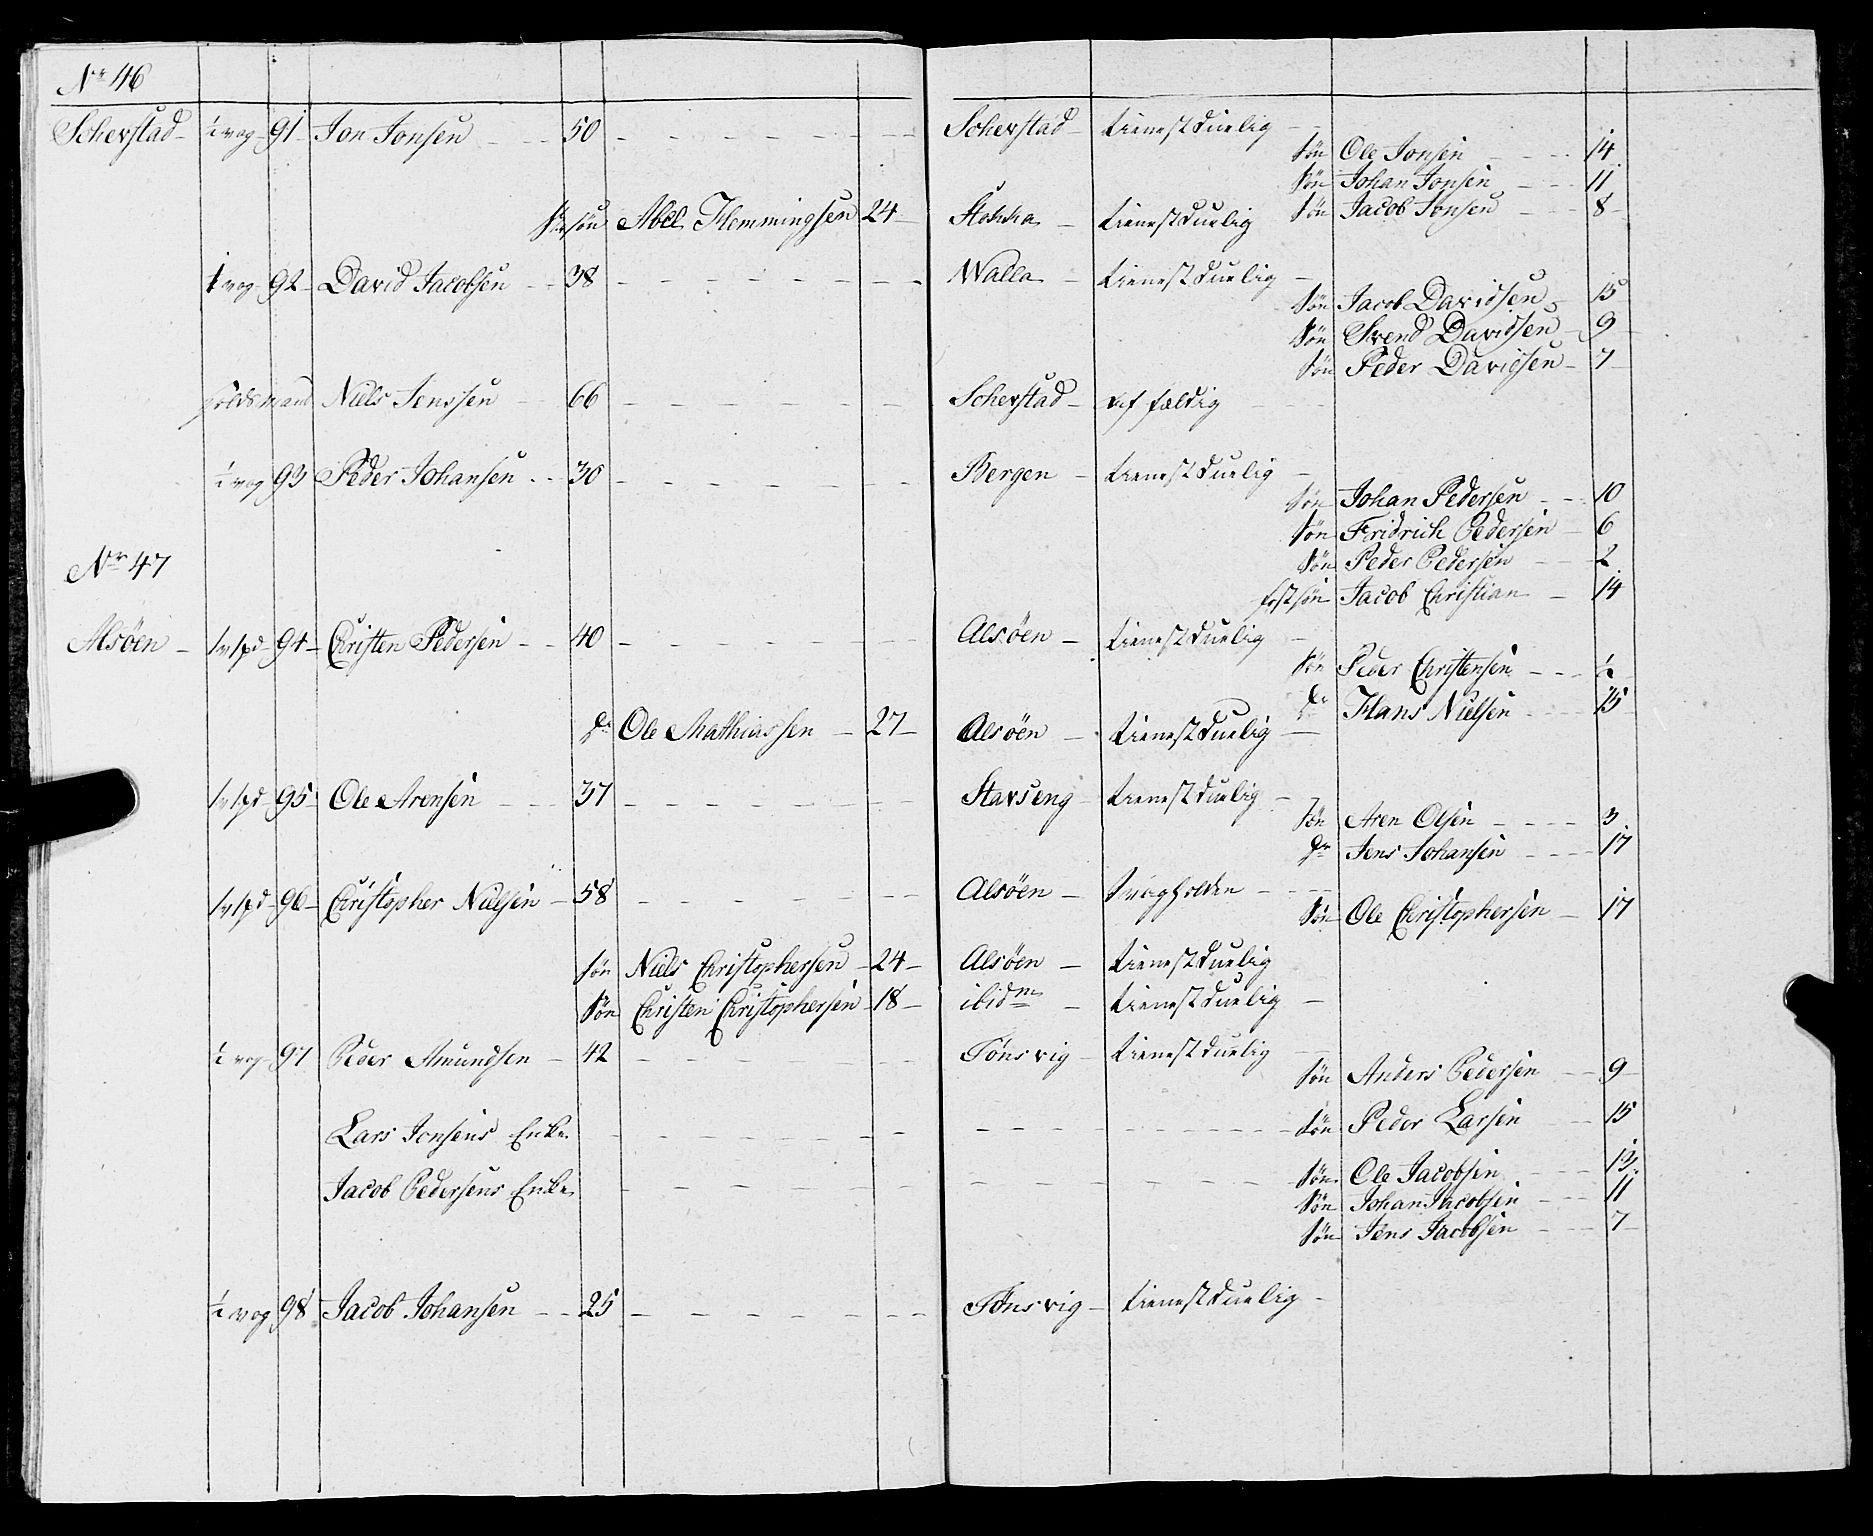 No 46
Scherstad - ½ vog - 91 - Jon Jonsen - - 50 - - - - - - - Scherstad - tienestduelig -
Søn Ole Jonsen - - - 14
Søn Johan Jonsen - - 11
Søn Jacob Jonsen - - - 8
søn Abel Flemmingsen 24 - Stokka - tienestduelig
1 vog - 92 - David Jacobsen - - 38 - - - - - - - Walla - tienestduelig -
Søn Jacob Davidsen - 15
Søn Svend Davidsen - 9
Søn Peder Davidsen - 7
Niels Jenssen - 66 - - - - - - - Scherstad - fældig - -
½ vog 93 Peder Johansen - - 30 - - - - - - - Bergen - tienestduelig -
Søn Johan Pedersen - - - 10
Søn Fridrich Pedersen - 6
Søn Peder Pedersen - - 2
fostsøn Jacob Christian - 14
Nr 47
Alsöen - 1 v 1 pd - 94 - Christen Pedersen - - 40 - - - - - - - Alsöen - tienestduelig -
Søn Peder Christensen - - - ½
Dr Hans Nielsen - - - 15
Dr Ole Mathiassen - 27 - Alsöen - tienestduelig -
1 v 1 pd - 95 Ole Arensen - - - 37 - - - - - - - Stavseng - tienestduelig -
Søn Aren Olsen - - - - 3
Dr Jens Johansen - - - 17
1 v 1 pd - 96 - Christopher Nielsen - 58 - - - - - - - Alsöen - - - -
Søn Ole Christophersen - 17
søn Niels Christophersen - 24 - Alsöen - tienestduelig
Søn Christen Christophersen - 18 - ibidm - tienestduelig -
½ vog - 97 Peder Amundsen - 42 - - - - - Tönsvig - tienestduelig -
Søn Anders Pedersen - - 9
Lars Jensens Enke - - - - - - - - - - - - - - - Søn Peder Larsen - - 15
Jacob Pedersens Enke - - - - - - - - - - - - - - - Søn Ole Jacobsen - - - 13
Søn Johan Jacobsen - - - 11
Søn Jens Jacobsen - - - 7
½ vog 98 Jacob Johansen - - 25 - - - - - - - Tönsvig - tienestduelig -